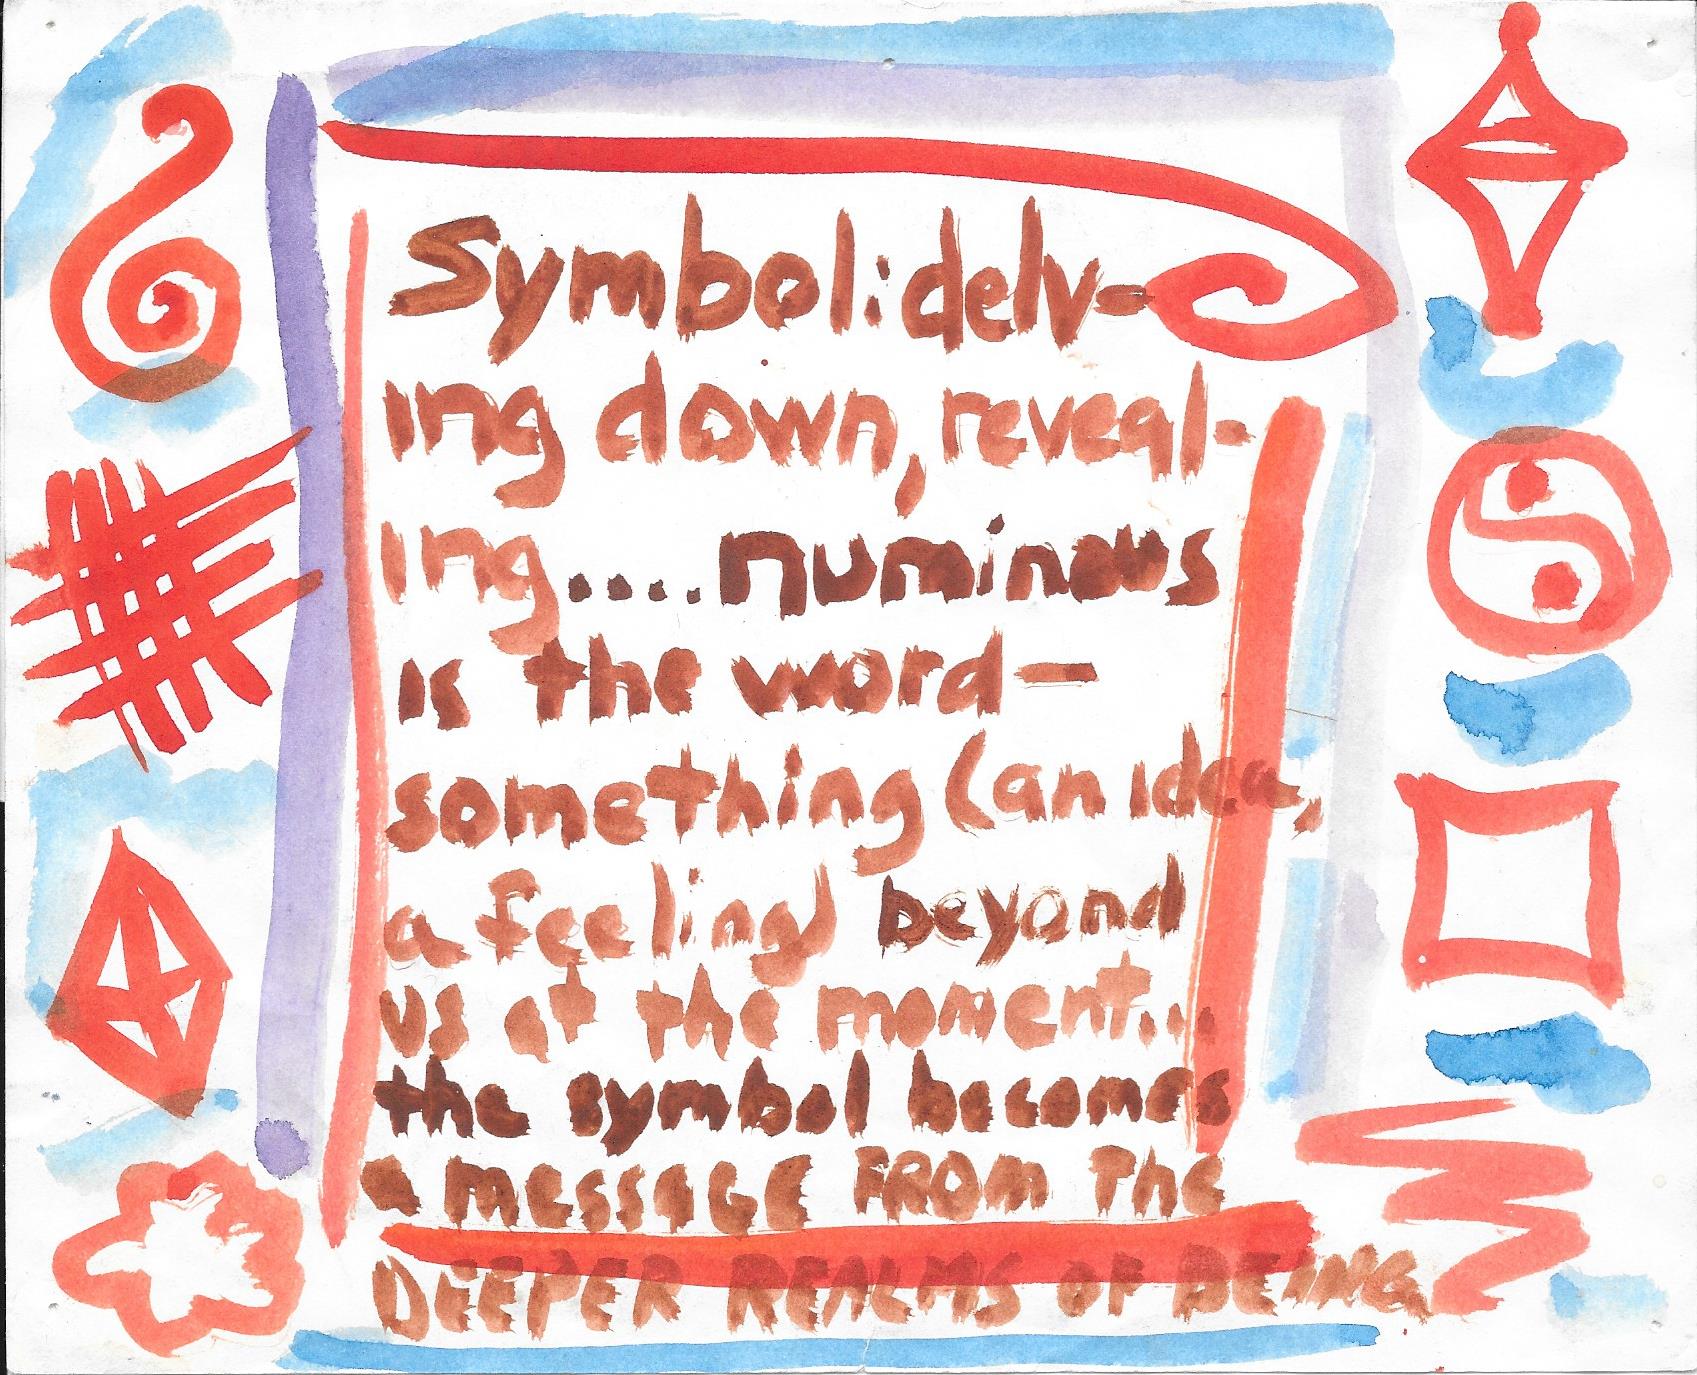 Symbol: delv-
ing down, reveal-
ing.... numinous
is the word—
something (an idea,
a feeling) beyond
us at the moment...
the symbol becomes
a message FROM The
DEEPER REALMS OF BEING